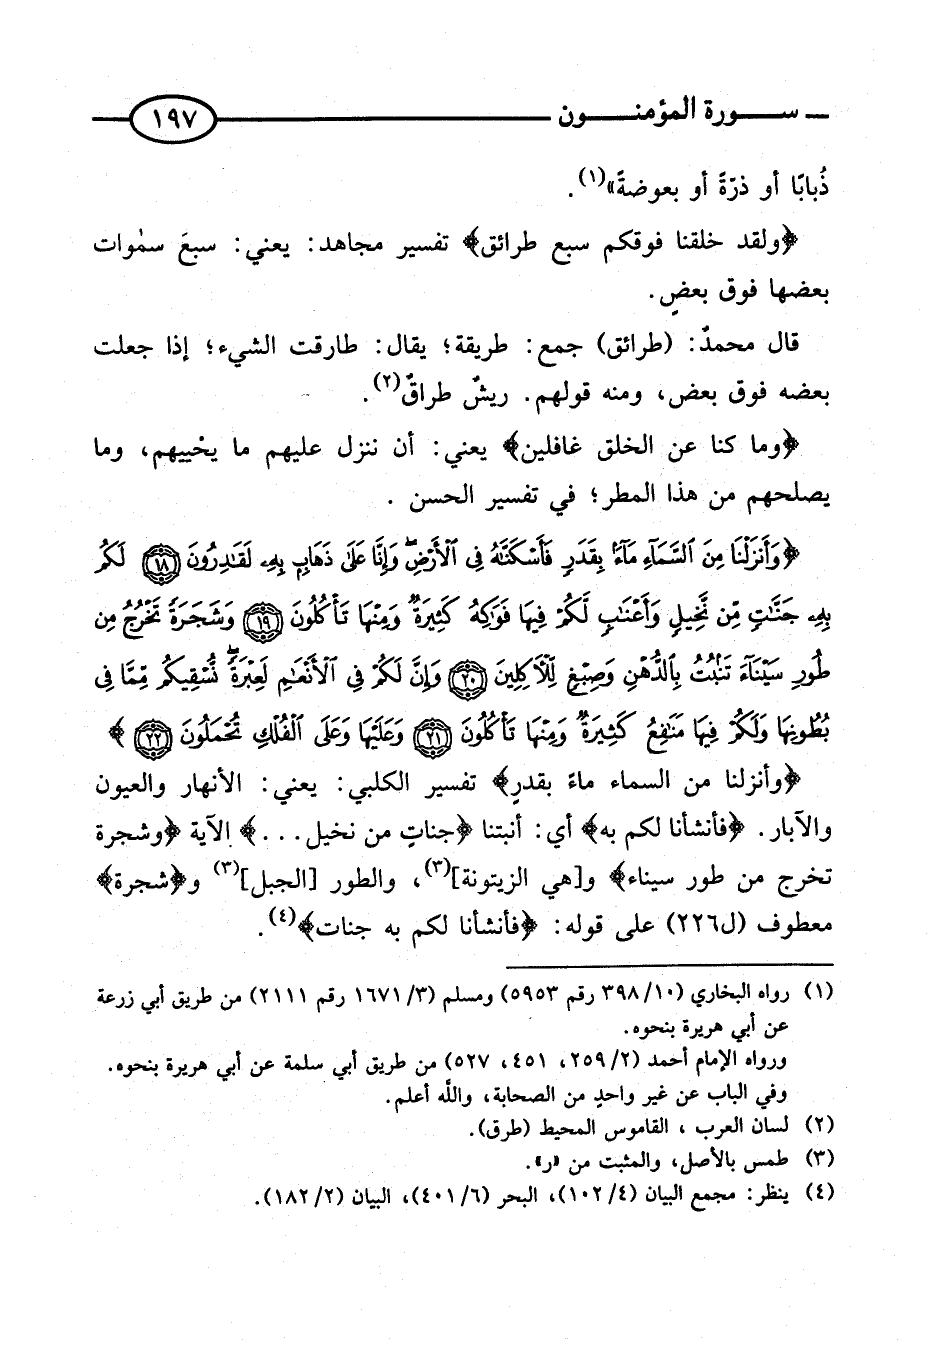 ـ سـورة المؤمنـون ١٩٧
ذُبابًا أو ذرّةً أو بعوضةً»(١).
﴿ولقد خلقنا فوقكم سبع طرائق﴾ تفسير مجاهد: يعني: سبعَ سمٰوات
بعضها فوق بعضٍ.
قال محمدٌ: (طرائق) جمع: طريقة؛ يقال: طارقت الشيء؛ إذا جعلت
بعضه فوق بعض، ومنه قولهم. ريشٌ طراقٌ(٢).
﴿وما كنا عن الخلق غافلين﴾ يعني: أن ننزل عليهم ما يحْييهم، وما
يصلحهم من هذا المطر؛ في تفسير الحسن .
﴿وَأَنزَلْنَا مِنَ ٱلسَّمَآءِ مَآءًۢ بِقَدَرٍ فَأَسْكَنَّٰهُ فِى ٱلْأَرْضِۖ وَإِنَّا عَلَىٰ ذَهَابٍۭ بِهِۦ لَقَٰدِرُونَ ١٨ لَكُم
بِهِۦ جَنَّٰتٍ مِّن نَّخِيلٍ وَأَعْنَٰبٍ لَّكُمْ فِيهَا فَوَٰكِهُ كَثِيرَةٌ وَمِنْهَا تَأْكُلُونَ ١٩ وَشَجَرَةً تَخْرُجُ مِن
طُورِ سَيْنَآءَ تَنۢبُتُ بِٱلدُّهْنِ وَصِبْغٍ لِّلْءَاكِلِينَ ٢٠ وَإِنَّ لَكُمْ فِى ٱلْأَنْعَٰمِ لَعِبْرَةًۖ نُّسْقِيكُم مِّمَّا فِى
بُطُونِهَا وَلَكُمْ فِيهَا مَنَٰفِعُ كَثِيرَةٌ وَمِنْهَا تَأْكُلُونَ ٢١ وَعَلَيْهَا وَعَلَى ٱلْفُلْكِ تُحْمَلُونَ ٢٢ ﴾
﴿وأنزلنا من السماء ماءً بقدرٍ﴾ تفسير الكلبي: يعني: الأنهار والعيون
والآبار. ﴿فأنشأنا لكم به﴾ أي: أنبتنا ﴿جناتٍ من نخيل...﴾ الآية ﴿وشجرة
تخرج من طور سيناء﴾ و[هي الزيتونة](٣)، والطور [الجبل](٣) و﴿شجرة﴾
معطوف (ل٢٢٦) على قوله: ﴿فأنشأنا لكم به جنات﴾(٤).
(١) رواه البخاري (٣٩٨/١٠ رقم ٥٩٥٣) ومسلم (١٦٧١/٣ رقم ٢١١١) من طريق أبي زرعة
عن أبي هريرة بنحوه.
ورواه الإمام أحمد (٢٥٩/٢، ٤٥١، ٥٢٧) من طريق أبي سلمة عن أبي هريرة بنحوه.
وفي الباب عن غير واحدٍ من الصحابة، واللَّه أعلم.
(٢) لسان العرب ، القاموس المحيط (طرق).
(٣) طمس بالأصل، والمثبت من «ر».
(٤) ينظر: مجمع البيان (١٠٢/٤)، البحر (٤٠١/٦)، البيان (١٨٢/٢).